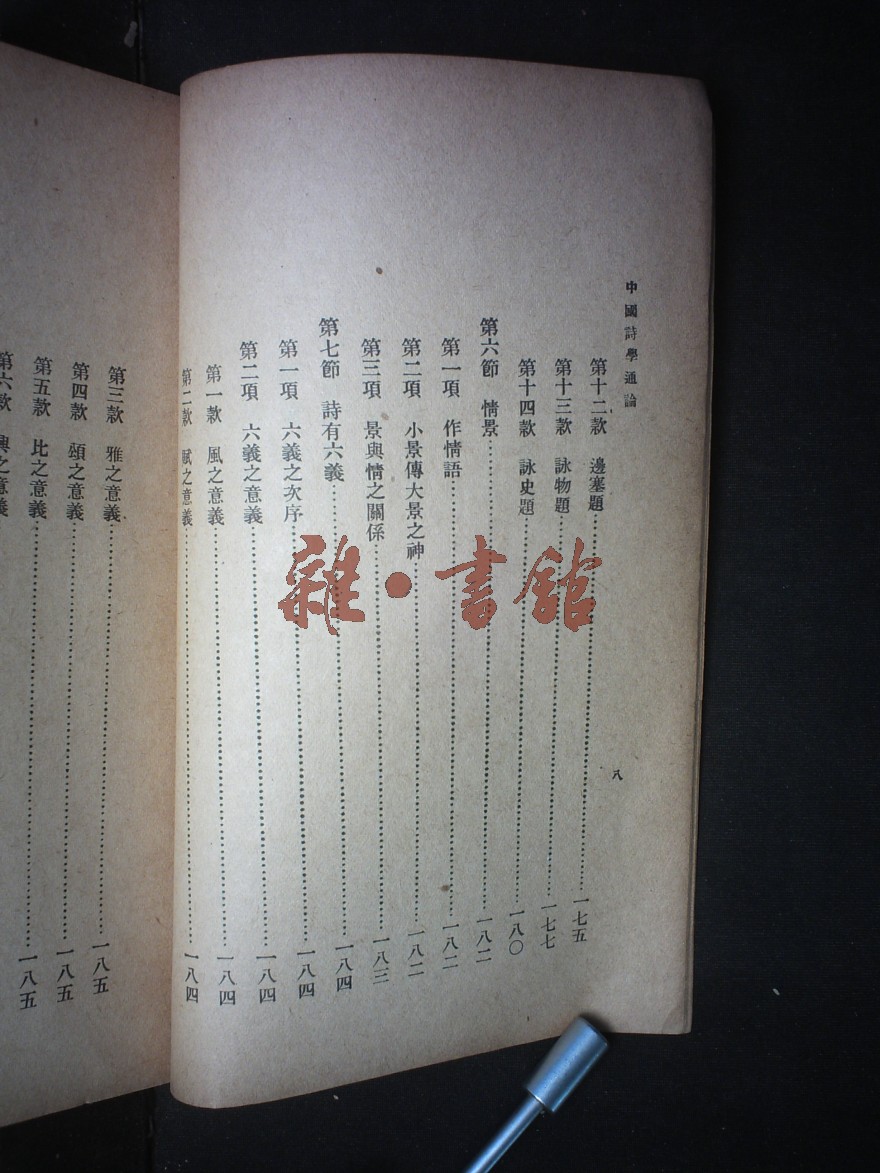 中國詩學通論
八
第十二款　邊塞題……一七五
第十三款　詠物題……一七七
第十四款　詠史題……一八〇
第六節　情景……一八二
第一項　作情語……一八二
第二項　小景傳大景之神……一八二
第三項　景與情之關係……一八三
第七節　詩有六義……一八四
第一項　六義之次序……一八四
第二項　六義之意義……一八四
第一款　風之意義……一八四
第二款　賦之意義……一八四
第三款　雅之意義……一八五
第四款　頌之意義……一八五
第五款　比之意義……一八五
第六款　興之意義
雜·書館